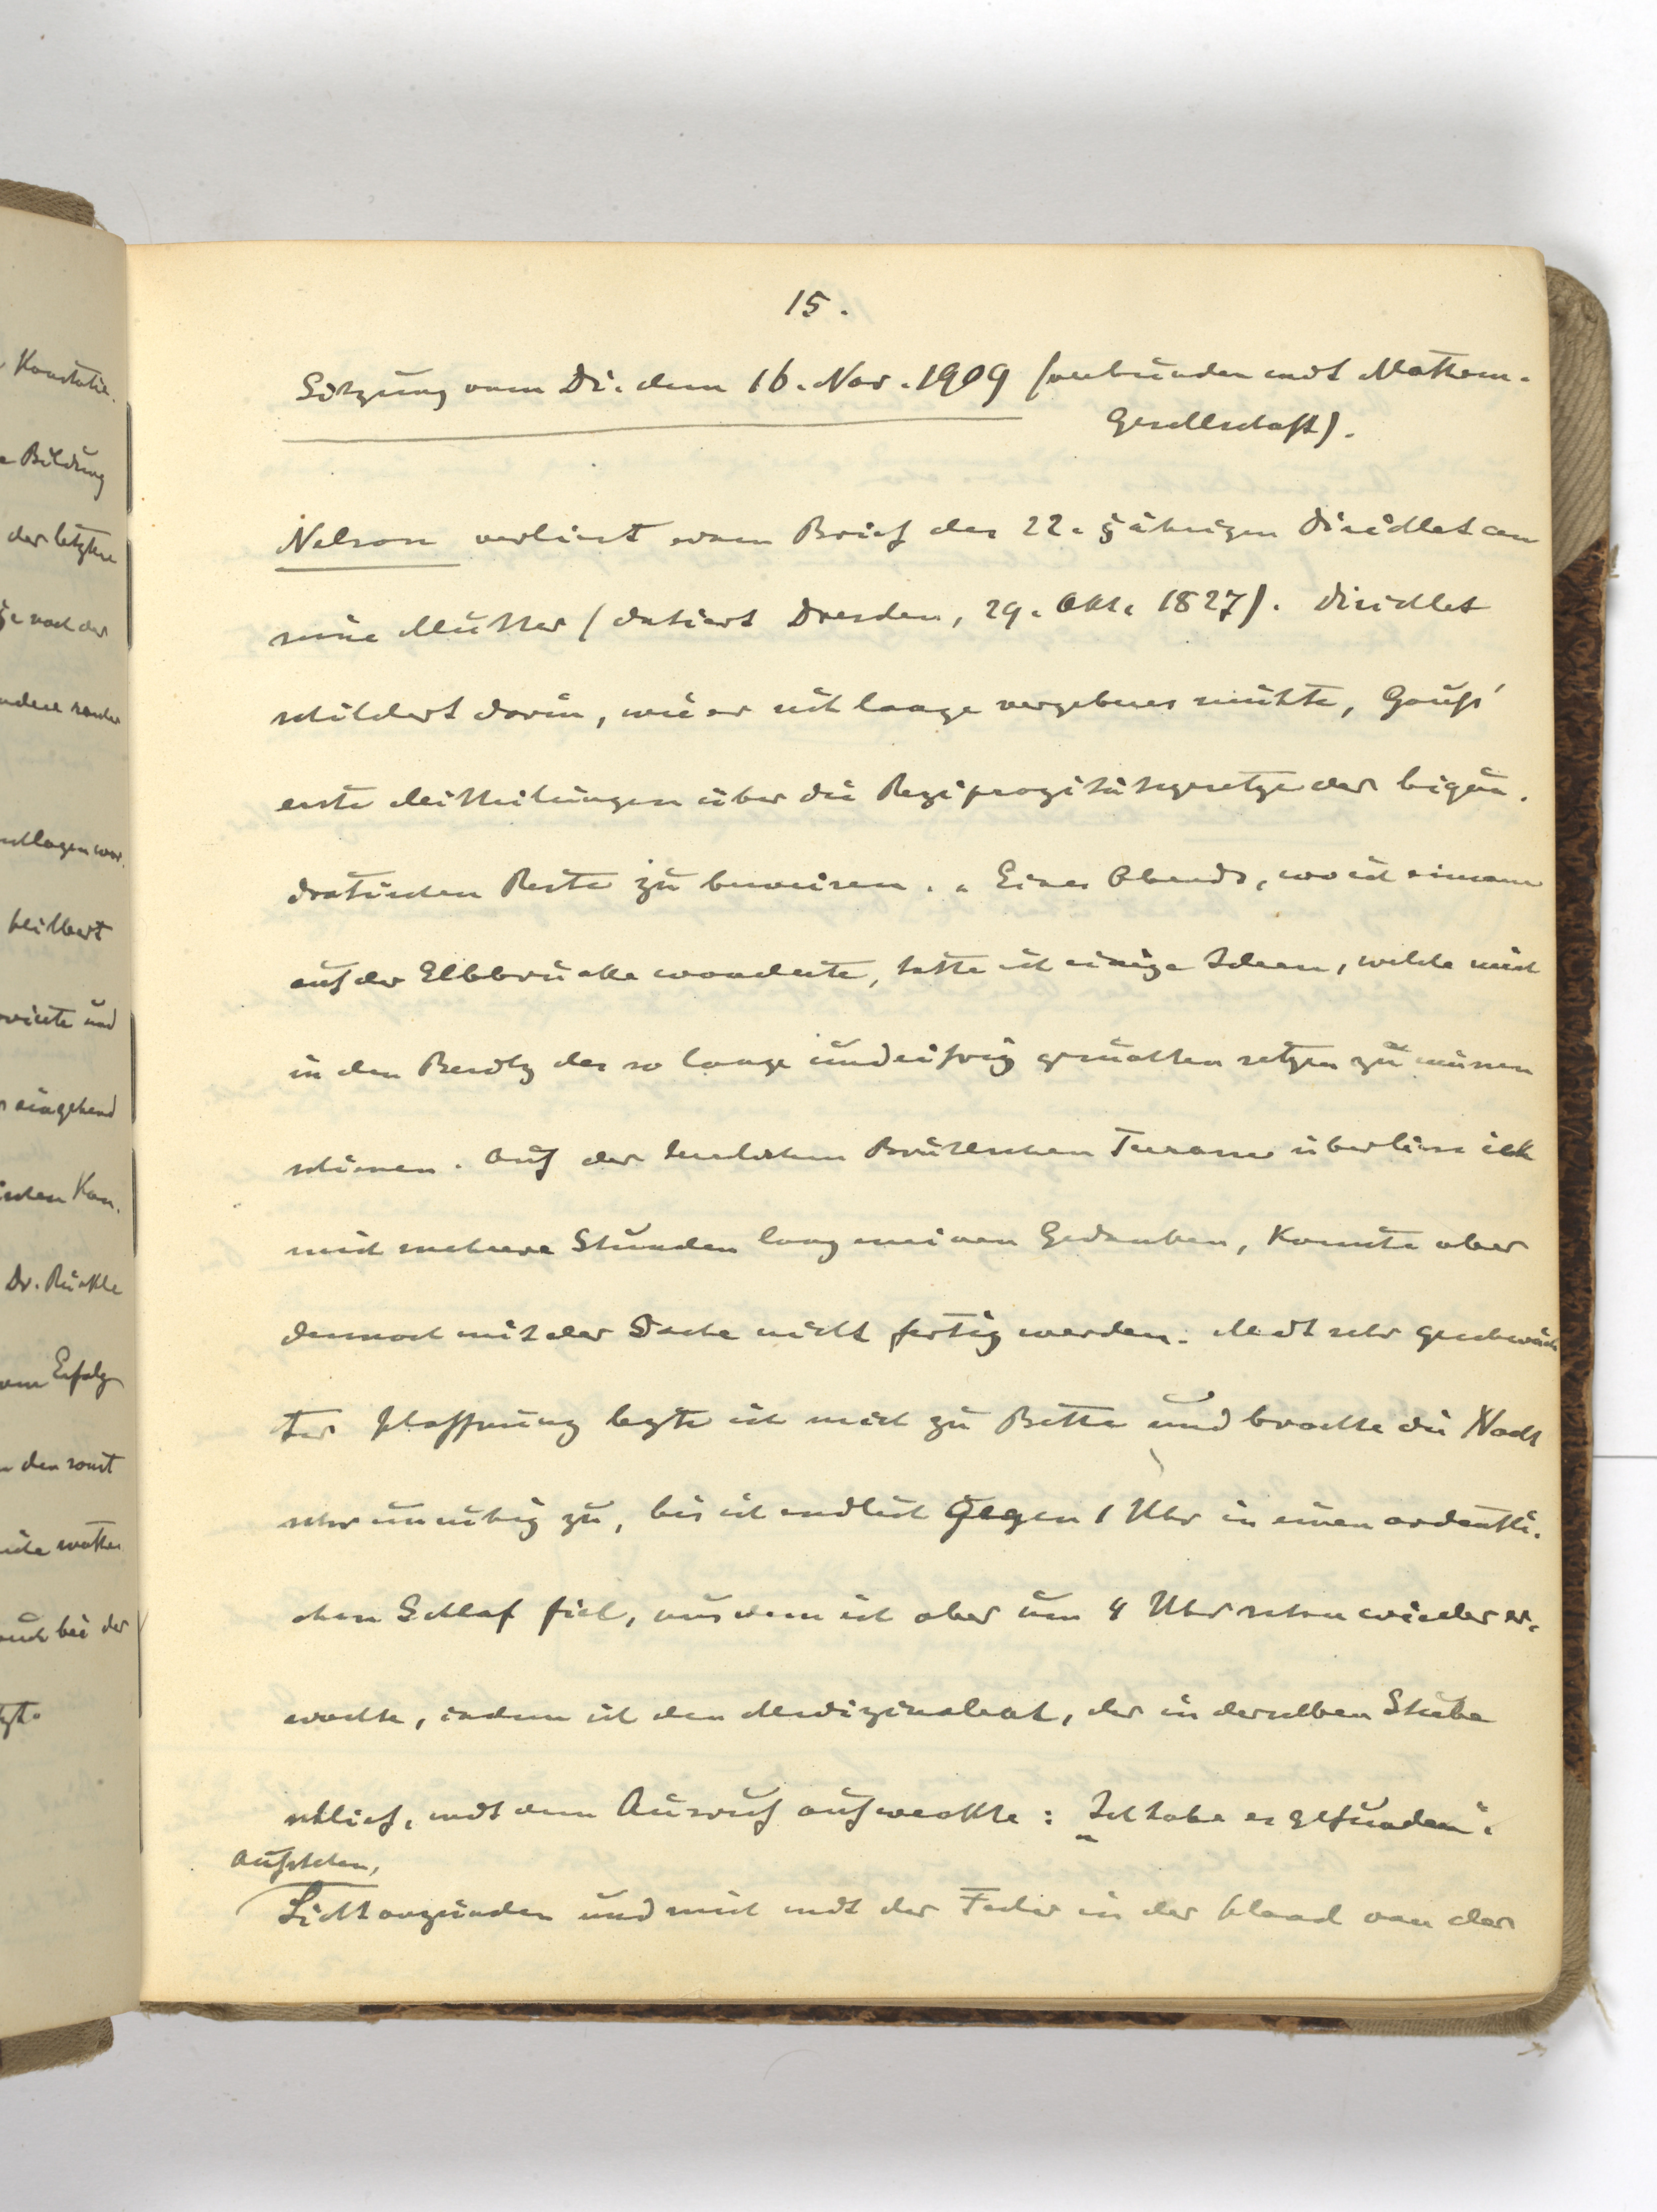 15.
Sitzung vom Di. dem 16. Nov. 1909 (verbunden mit Mathem.
Gesellschaft).
Nelson verliest einen Brief des 22-jährigen Dirichlet an
seine Mutter (datiert Dresden, 29. Okt. 1827). Dirichlet
schildert darin, wie er sich lange vergebens mühte, Gauß'
erste Mitteilungen über die Reziprozitätsgesetze der biqua-
dratischen Reste zu beweisen. „Eines Abends, wo ich einsam
auf der Elbbrücke wanderte, hatte ich einige Ideen, welche mich
in den Besitz des so lange und eifrig gesuchten setzen zu müssen
schienen. Auf der herrlichen Brühlschen Terrasse überliess ich
mich mehrere Stunden lang meinen Gedanken, konnte aber
dennoch mit der Sache nicht fertig werden. Mit sehr geschwäch-
ter Hoffnung legte ich mich zu Bette und brachte die Nacht
sehr unruhig zu, bis ich endlich gegen 1 Uhr in einen ordentli-
chen Schlaf fiel, aus dem ich aber um 4 Uhr schon wieder er-
wachte, indem ich den Medizinalrat, der in derselben Stube
schlief, mit dem Ausruf aufweckte: „Ich habe es gefunden".
Aufstehen,
Licht anzünden und mich mit der Feder in der Hand von der
Konstatie-
Bildung
der letztere
nach der
andere
schlagen war.
Hilbert
und
eingehend
Kon-
Dr. Rückle
Erfolg
den sonst
auch bei der